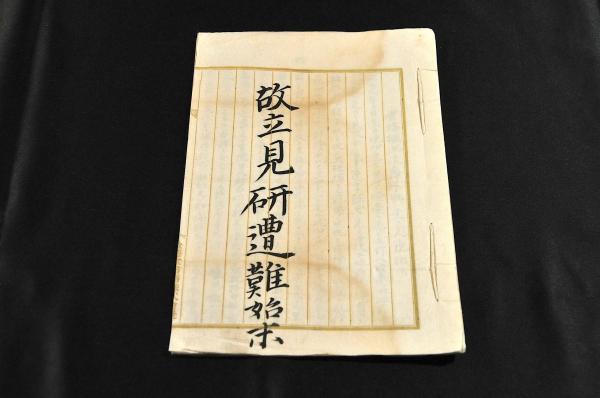 故立見研遭難始末